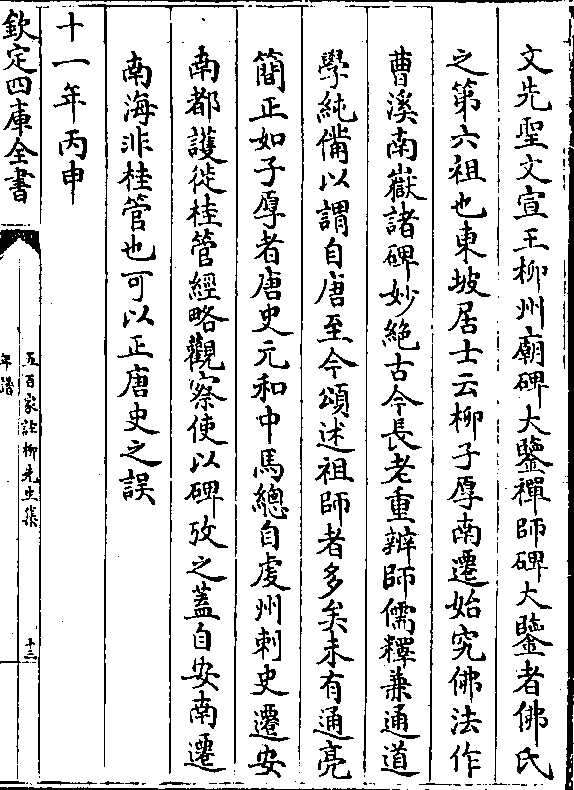 文先聖文宣王柳州廟碑大鑒禪師碑大鑒者佛氏
之第六祖也東坡居士云柳子厚南遷始究佛法作
曹溪南嶽諸碑妙絕古今長老重辨師儒釋兼通道
學純備以謂自唐至今頌述祖師者多矣未有通亮
簡正如子厚者唐史元和中馬總自虔州刺史遷安
南都護徙桂管經略觀察使以碑攷之蓋自安南遷
南海非桂管也可以正唐史之誤
十一年丙申
欽定四庫全書
五百家註柳先生集
年譜
十三